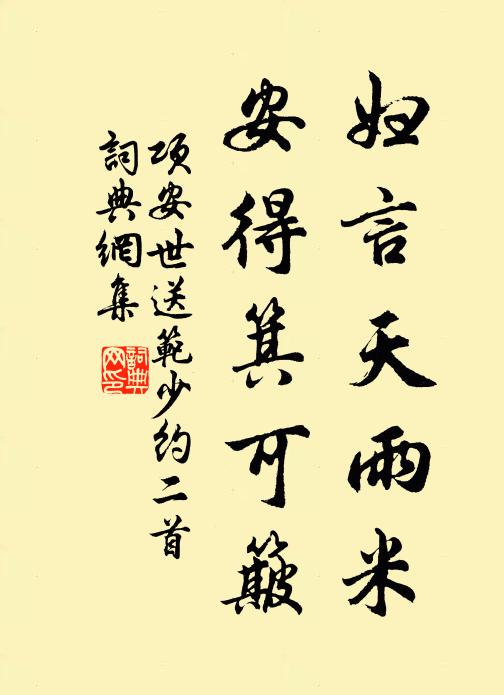 妇言天雨米
安得箕可簸
项安世送範少约二首
詞典網集
詞典
网印